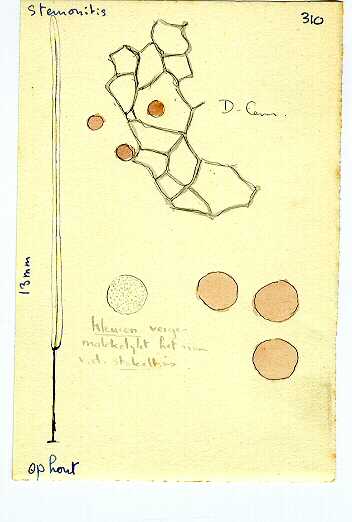 Stemonitis
310
D-Cam.
13 mm
Kleuren verge-
makkelykt het
v.d. stekeltjes
op hout